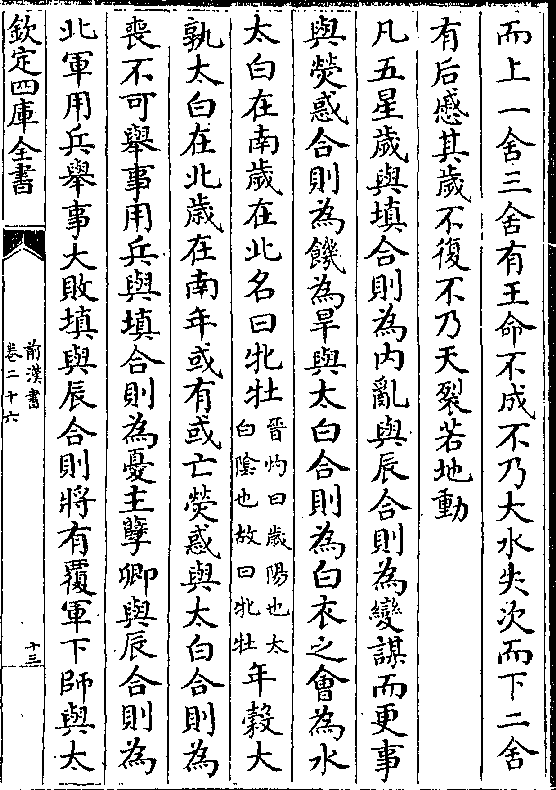 而上一舍三舍有王命不成不乃大水失次而下二舍
有后慼其歲不復不乃天裂若地動
凡五星歲與填合則為内亂與辰合則為變謀而更事
與熒惑合則為饑為旱與太白合則為白衣之會為水
太白在南歲在北名曰牝牡晉灼曰歲陽也太白陰也故曰牝牡年穀大
孰太白在北歲在南年或有或亡熒惑與太白合則為
喪不可舉事用兵與填合則為憂主孽卿與辰合則為
北軍用兵舉事大敗填與辰合則將有覆軍下師與太
欽定四庫全書
前漢書
卷二十六
十三